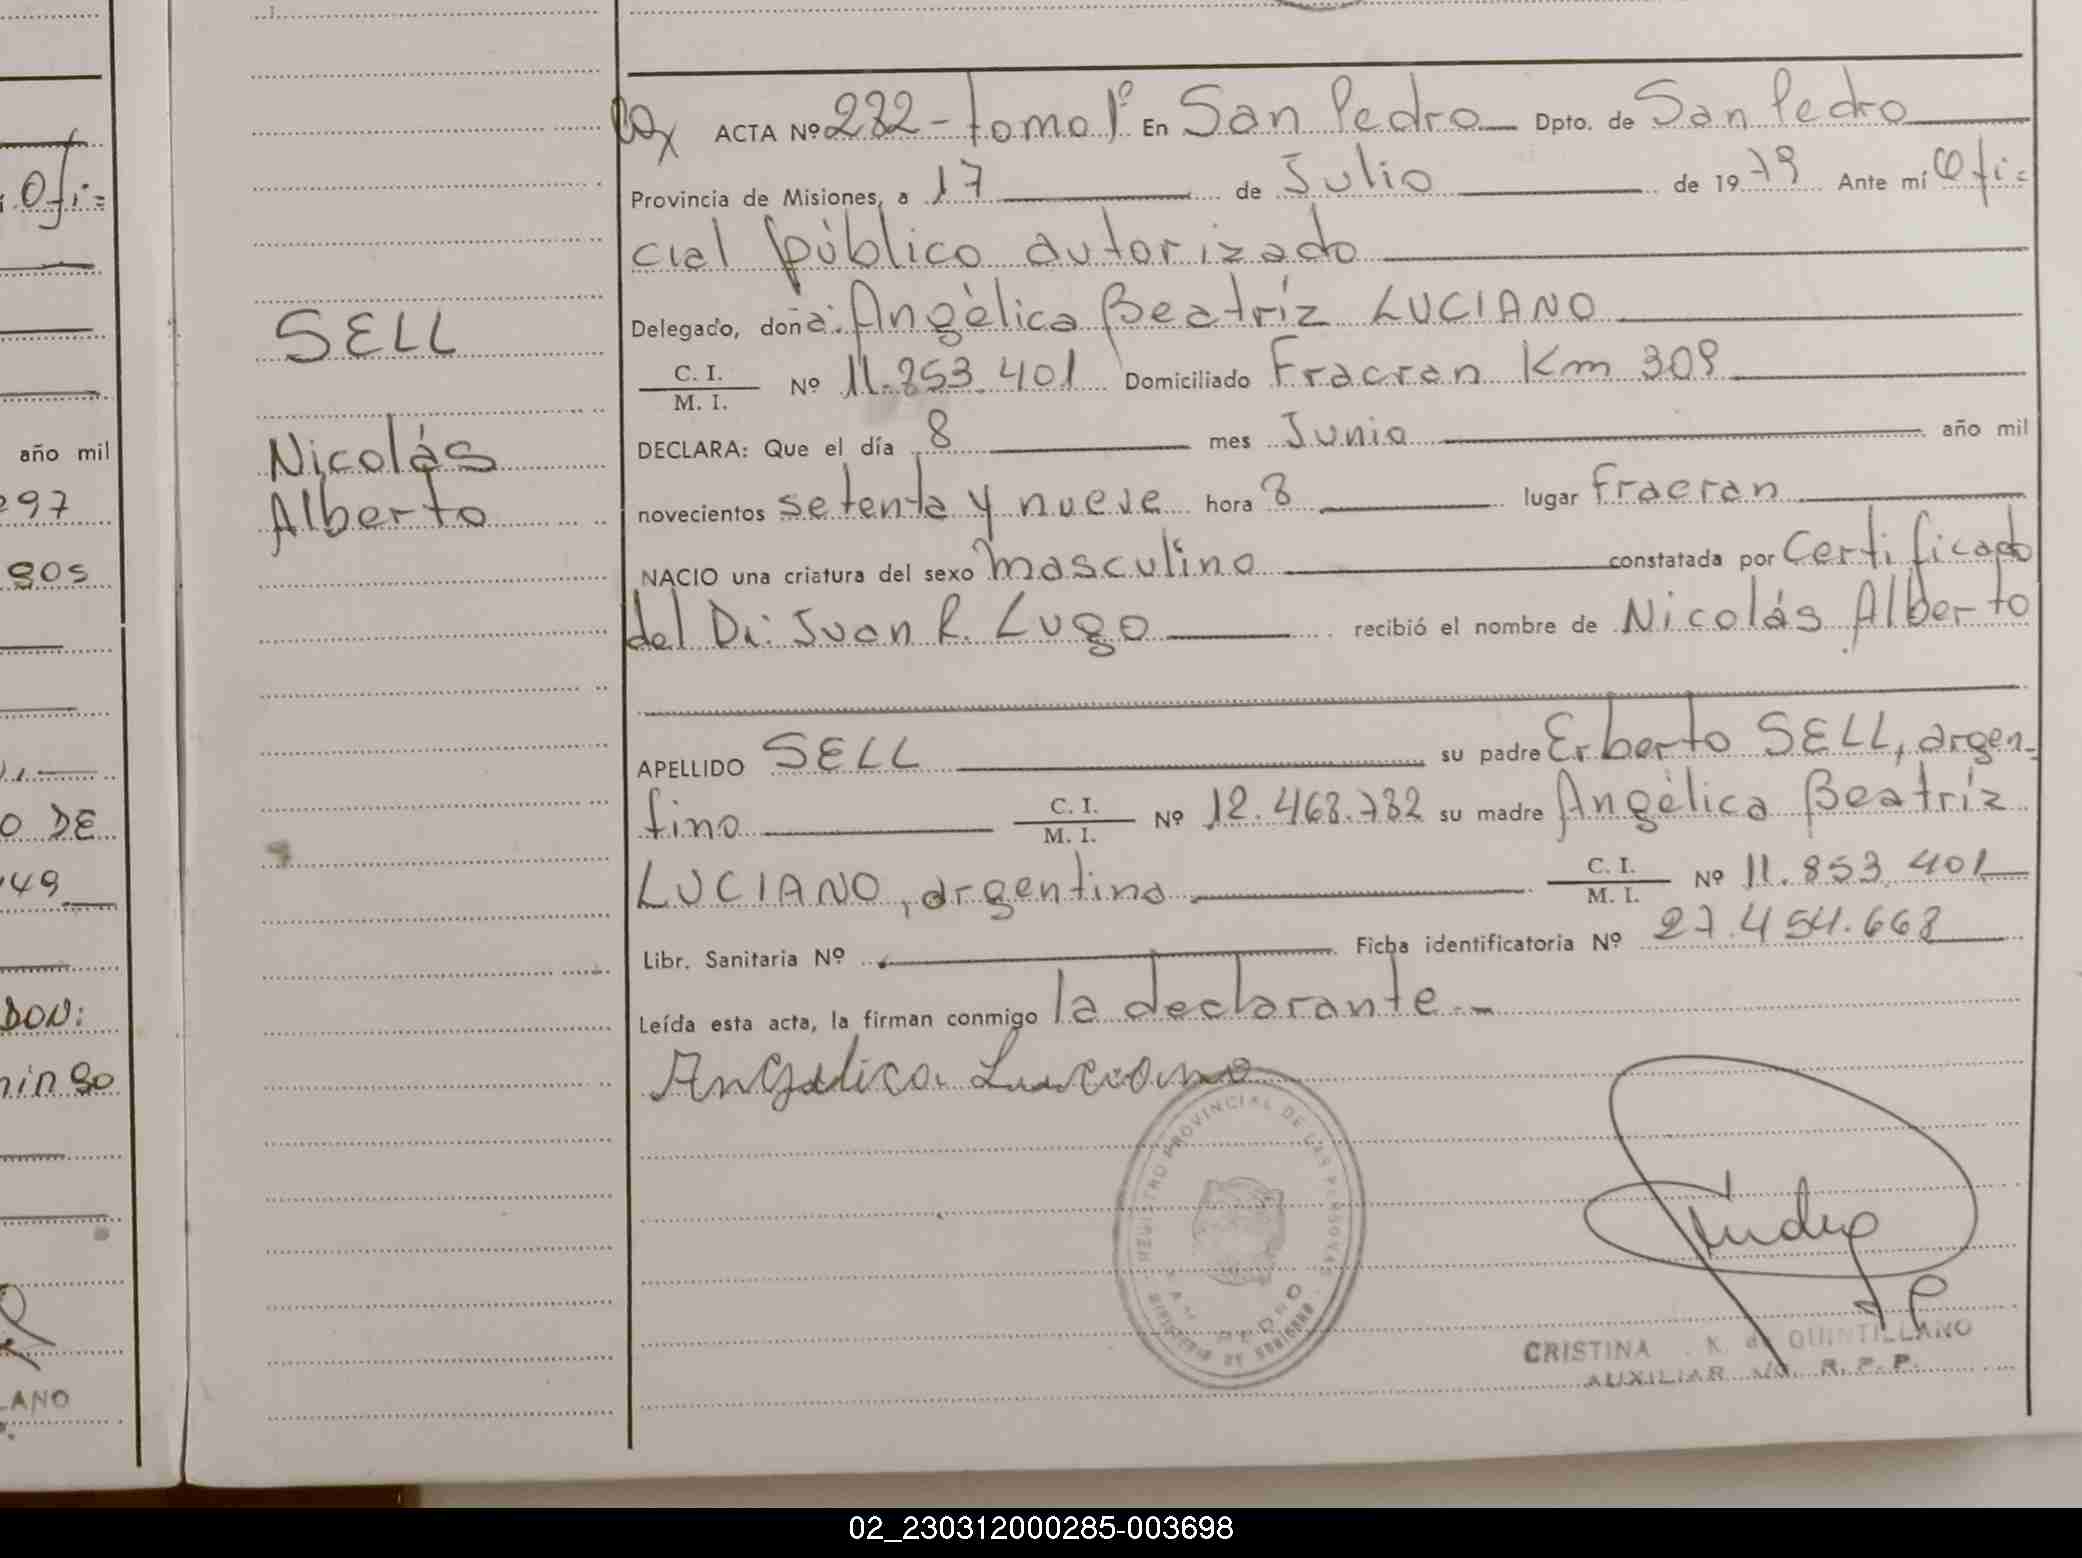 Ofi=
año mil
297
gos
O DE
49
DON:
mingo
LANO
SELL
Nicolás
Alberto
ACTA Nº 282 - tomo 1º En San Pedro Dpto. de San Pedro
Provincia de Misiones, a 17 de Julio de 1979 Ante mí Ofi=
cial público autorizado
Delegado, doña: Angélica Beatríz LUCIANO
C. I.
M. I. Nº 11.853.401 Domiciliado Fracran Km 308
DECLARA: Que el día 8 mes Junio año mil
novecientos setenta y nueve hora 8 lugar Fracran
NACIO una criatura del sexo masculino constatada por Certificado
del Dr: Juan R. Lugo recibió el nombre de Nicolás Alberto
APELLIDO SELL su padre Erberto SELL, argen-
tino C. I.
M. I. Nº 12.468.782 su madre Angélica Beatríz
LUCIANO, argentina C. I.
M. I. Nº 11.853.401
Libr. Sanitaria Nº Ficha identificatoria Nº 27.454.668
Leída esta acta, la firman conmigo la declarante.-
Angelica Luciano
REGISTRO PROVINCIAL DE LAS PERSONAS
SAN PEDRO
MINISTERIO DE GOBIERNO
CRISTINA K. de QUINTILLANO
AUXILIAR R. P. P.
02_230312000285-003698